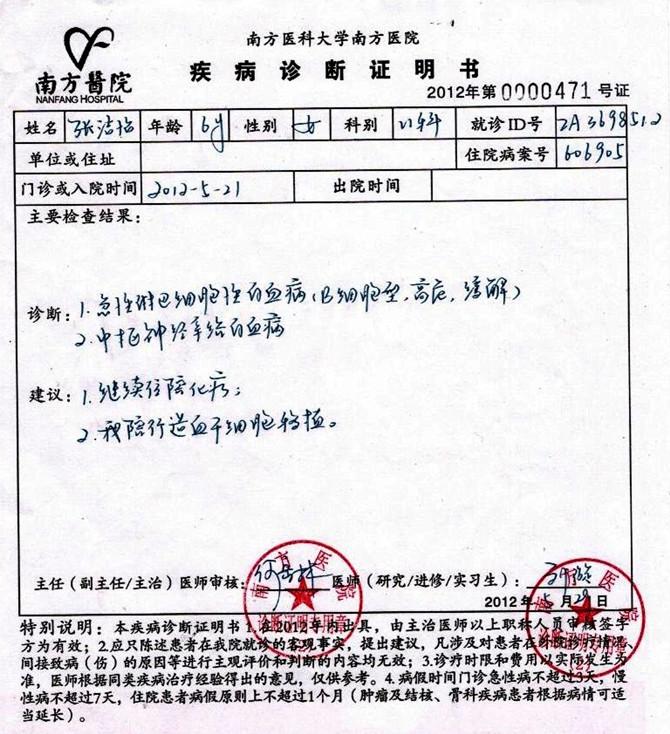 南方医科大学南方医院
南方醫院
NANFANG HOSPITAL
疾病诊断证明书
2012年第0000471号证
姓名 张洁怡 年龄 6岁 性别 女 科别 儿科 就诊ID号 ZA3698512
单位或住址 住院病案号 606905
门诊或入院时间 2012-5-21 出院时间
主要检查结果:
诊断: 1.急性淋巴细胞性白血病(B细胞型,高危,缓解)
2.中枢神经系统白血病
建议: 1.继续住院化疗;
2.我院行造血干细胞移植。
主任(副主任/主治)医师审核: 医师(研究/进修/实习生):
2012年5月29日
南方医院
诊断证明专用章
南方医院
诊断证明专用章
(2)
特别说明:本疾病诊断证明书1.在2012年内出具,由主治医师以上职称人员审核签字
方为有效;2.应只陈述患者在我院就诊的客观事实,提出建议,凡涉及对患者在我院诊疗情况、
间接致病(伤)的原因等进行主观评价和判断的内容均无效;3.诊疗时限和费用以实际发生为
准,医师根据同类疾病治疗经验得出的意见,仅供参考。4.病假时间门诊急性病不超过3天,慢
性病不超过7天,住院患者病假原则上不超过1个月(肿瘤及结核、骨科疾病患者根据病情可适
当延长)。